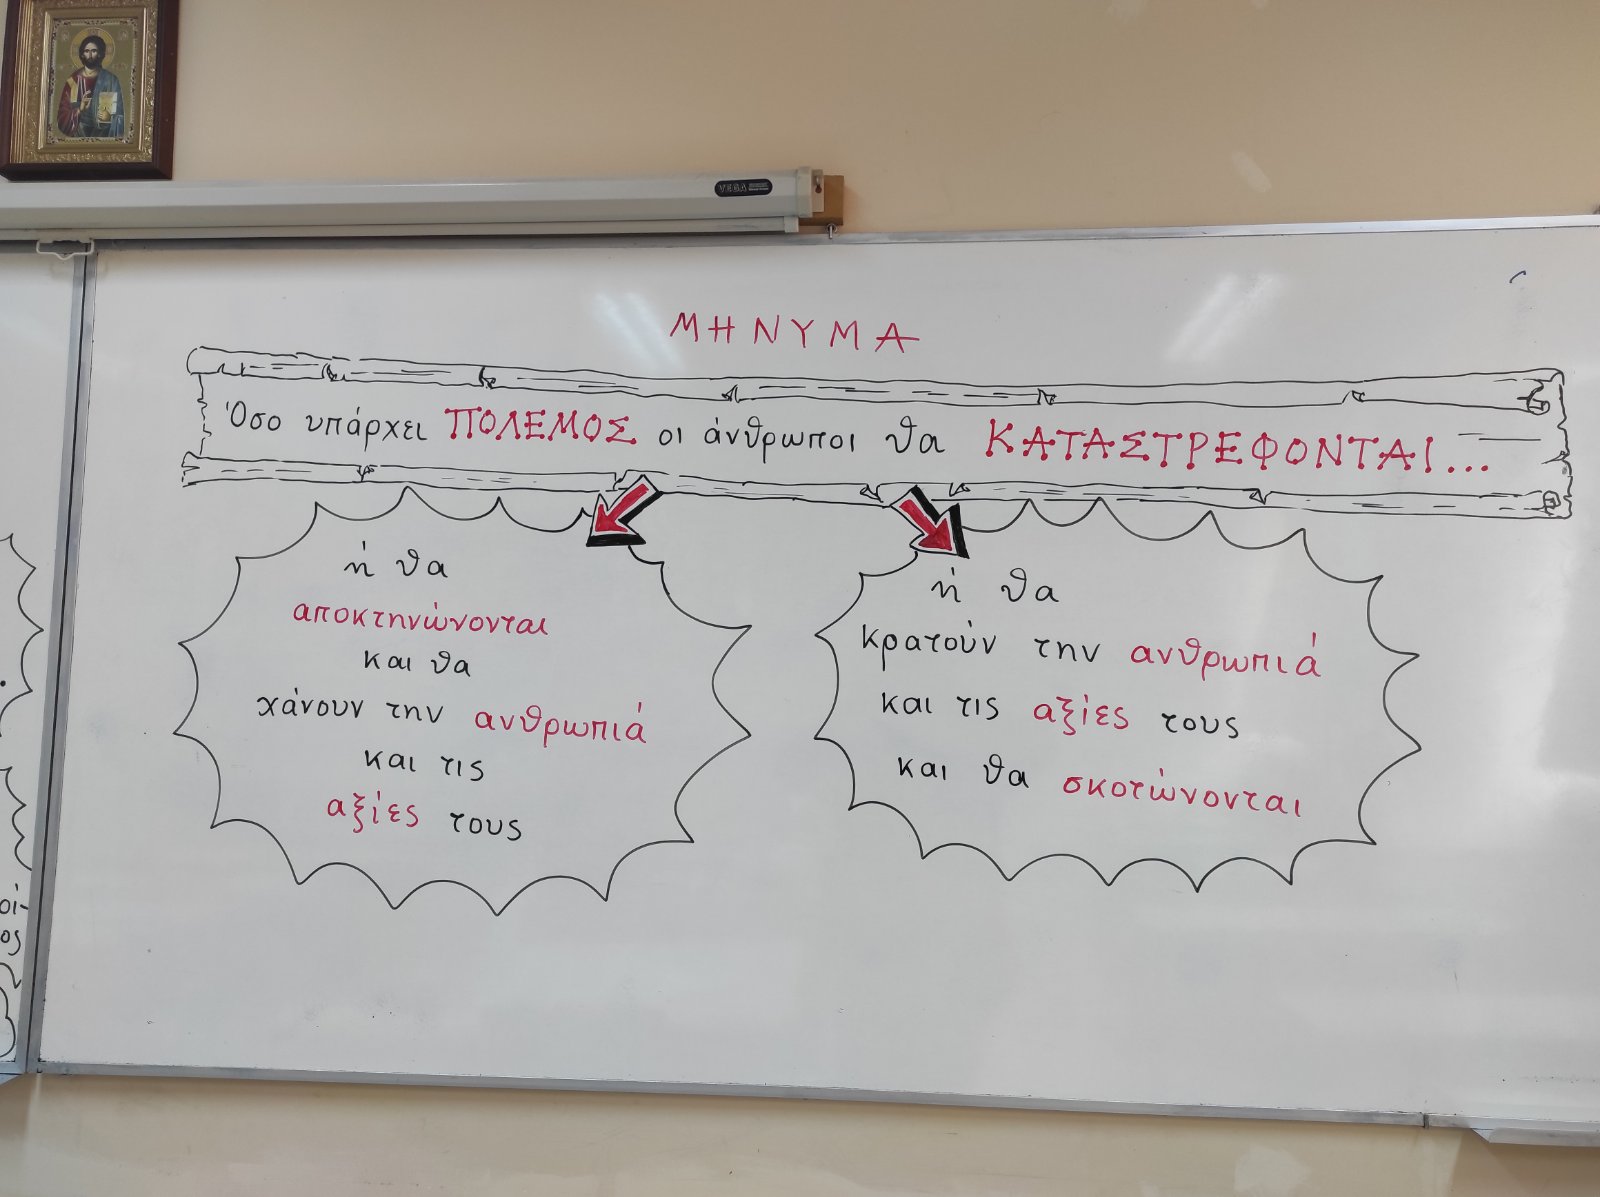 VEGA
ΜΗΝΥΜΑ
Όσο υπάρχει ΠΟΛΕΜΟΣ οι άνθρωποι θα ΚΑΤΑΣΤΡΕΦΟΝΤΑΙ...
ή θα
αποκτηνώνονται
και θα
χάνουν την ανθρωπιά
και τις
αξίες τους
ή θα
κρατούν την ανθρωπιά
και τις αξίες τους
και θα σκοτώνονται
οι-
ος